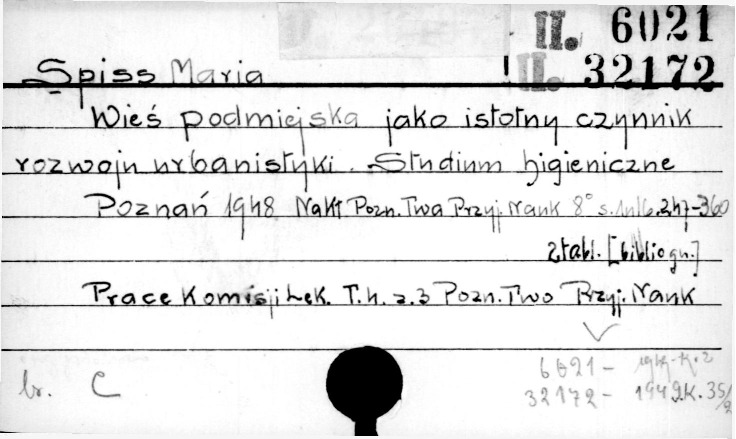 II. 6021
Spiss Maria II. 32172
Wieś podmiejska jako istotny czynnik
rozwoju urbanistyki. Studium higieniczne
Poznań 1948 Nakł Pozn. Twa Przyj. Nauk 8° s. 1nlb. 247-360
2 tabl. [bibliogr.]
Prace Komisji Lek. T. 4. z. 3 Pozn. Two Przyj. Nauk
6021 -
br. C 32172 - 1949 K. 35/2